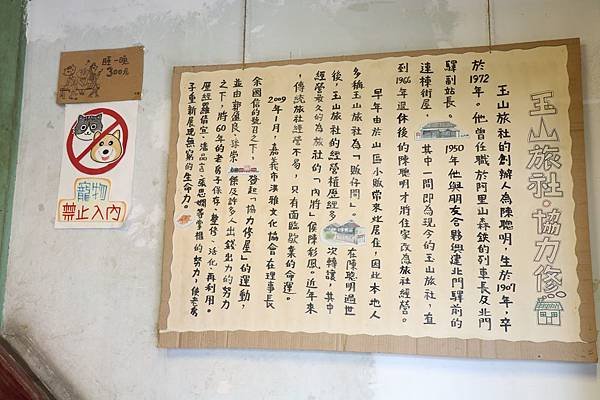 玉山旅社·協力修
玉山旅社的創辦人為陳聰明,生於1907年,卒
於1972年。他曾任職於阿里山森鉄的列車長及北門
驛副站長。1950年他與朋友合夥興建北門驛前的
連棟街屋,其中一間即為現今的玉山旅社,直
到1966年退休後的陳聰明才將住家改為旅社經營。
早年由於山區小販常來此居住,因此本地人
多稱玉山旅社為「販仔間」。在陳聰明過世
後,玉山旅社的經營權歷經多次轉讓,其中
經營最久的為旅社的「內將」侯陳彩鳳。近年來
,傳統旅社經營不易,只有面臨歇業的命運。
2009年1月,嘉義市洪雅文化協會在理事長
余國信的號召之下,發起「協力停屋」的運動,
並由郭盈良、徐崇傑及許多人出錢出力的努力
之下,將60年的老房子保存、整修、活化、再利用。
歷經羅倩宜、潘品言、張思嫻等掌櫃的努力,使老房
子重新展現無窮的生命力。
旺一晚
300元
寵物
禁止入內